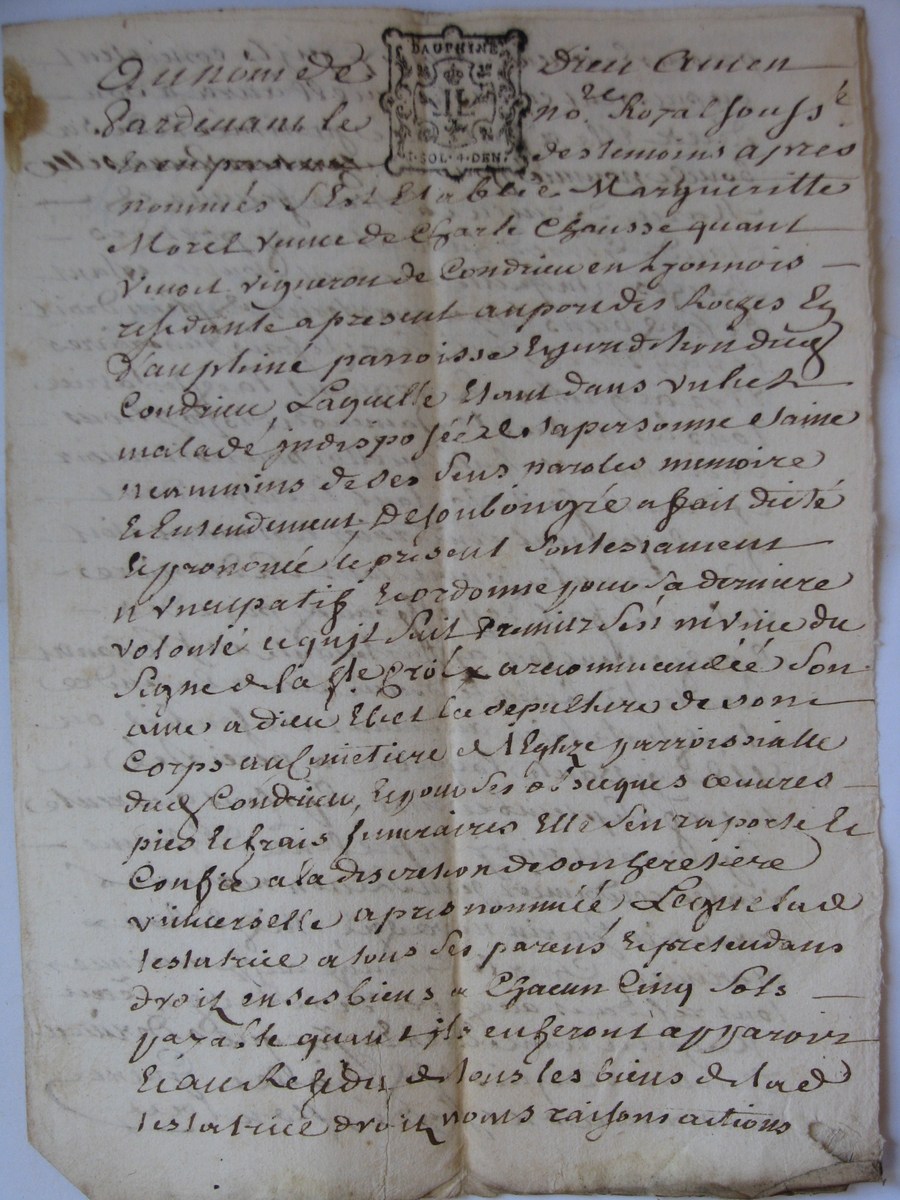 DAUPHINE
1. SOL. 4. DEN.
Au nom de Dieu Amen
Pardevant le no.re Royal souss.é
des temoins apres
nommés s'Est Etablie Margueritte
Morel veuve de Charle Chausse quant
vivoit vigneron de Condrieu en Lyonnois
residante a present au pon des Roches En
D'auphiné parroisse Et jurediction dud
Condrieu, Laquelle Etant dans un lict
malade indisposéé de sa personne saine
neanmoins de ses sens paroles memoire
Et Entendement De son bon gré a fait dicté
Et prononcé le present son testament
nuncupatif Et ordonne pour sa derniere
volonté ce qui suit Premier s'est munie du
signe de la Ste Croix a recommandéé son
ame a dieu Eliet la sepulture de son
Corps au Cimetiere de l'Eglize parroissialle
dud Condrieu, Et pour ses obseques œuvres
pies Et frais funeraires Elle s'en raporte Et
Confie a la discretion de son heretiere
universelle apres nomméé Legue lad
testatrice a tous ses parens Et pretendans
droit en ses biens a Chacun Cinq sols
payable quant ils en feront apparoir
Et au Residu de tous les biens de lad
testatrice droit noms raisons actions